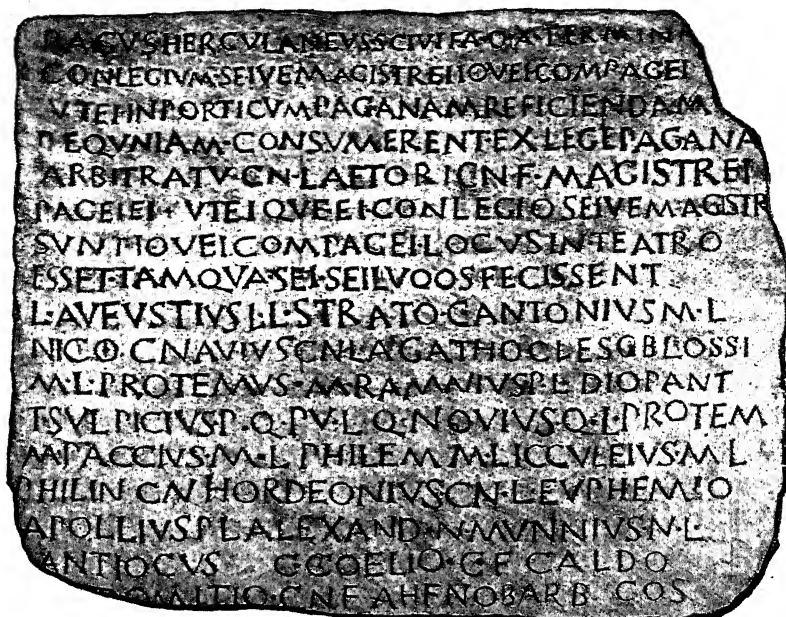 PAGVS HERCVLANEVS SCIVIT A·D·X TERMINA
CONLEGIVM·SEIVE MAGISTREI IOVEI COMPAGEI
VTEI IN PORTICVM PAGANAM REFICIENDAM
PEQVNIAM·CONSVMERENT EX·LEGE PAGANA
ARBITRATV·CN·LAETORI CN F·MAGISTREI
PAGEIEI·VTEIQVE EI CONLEGIO SEIVE MAGISTR
SVNT IOVEI COMPAGEI·LOCVS IN TEATRO
ESSET TAMQVA SEI·SEI LVDOS FECISSENT
L·AVFVSTIVS L L·STRATO C ANTONIVS M·L
NICO·CN AVIVS CN L AGATHOCLES C BLOSSI
M·L·PROTEMVS·M·RAMNIVS P L DIOPANT
T SVLPICIVS P·Q·PV·L Q·NOVIVS Q·L PROTEM
M PACCIVS·M·L PHILEM M LICCVLEIVS·M L
PHILIN CN HORDEONIVS CN·L EVPHEMIO
A POLLIVS P L ALEXAND N MVNNIVS N L
ANTIOCVS C COELIO·C F CALDO
DOMITIO·CN F AHENOBARB COS